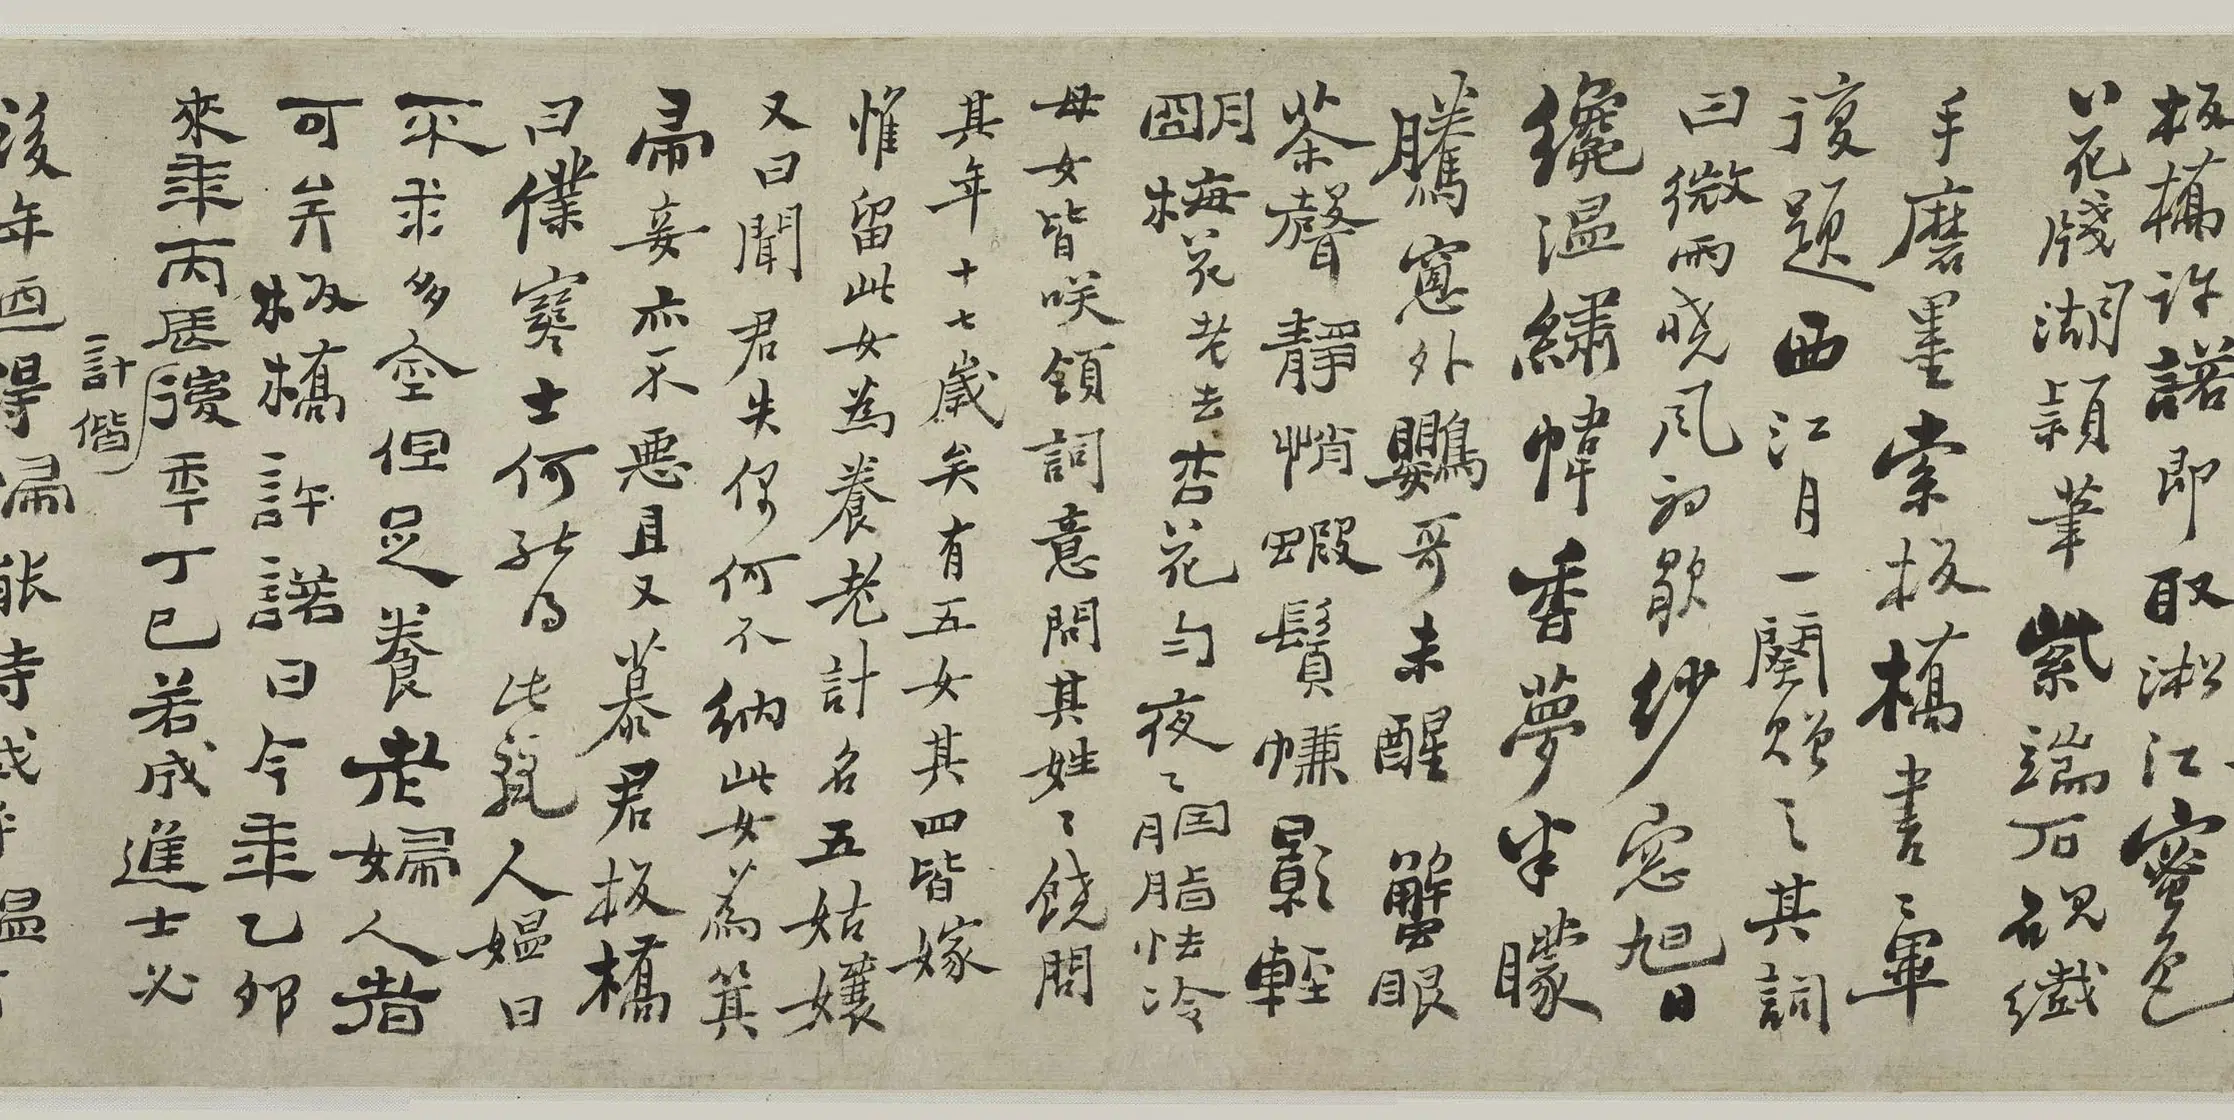 板橋許諾即取淞江蜜色
花牋湖頴筆紫端石硯纖
手磨墨索板橋書〻畢
復題西江月一闋贈之其詞
曰微雨曉風初歇紗窓旭日
纔温繡幃香夢半朦
騰窓外鸚哥未醒蟹眼
茶聲靜悄蝦鬚㡘影輕
明梅花老去杏花勻夜〻胭脂怯冷
母女皆咲領詞意問其姓〻饒問
其年十七歲矣有五女其四皆嫁
惟留此女為養老計名五姑孃
又曰聞君失偶何不納此女為箕
帚妾亦不惡且又慕君板橋
曰僕寠士何能得此麗人媼曰
不求多金但足養老婦人者
可矣板橋許諾曰今年乙卯
來年丙辰後年丁巳若成進士必
計偕
後年廼得歸能待我乎媼